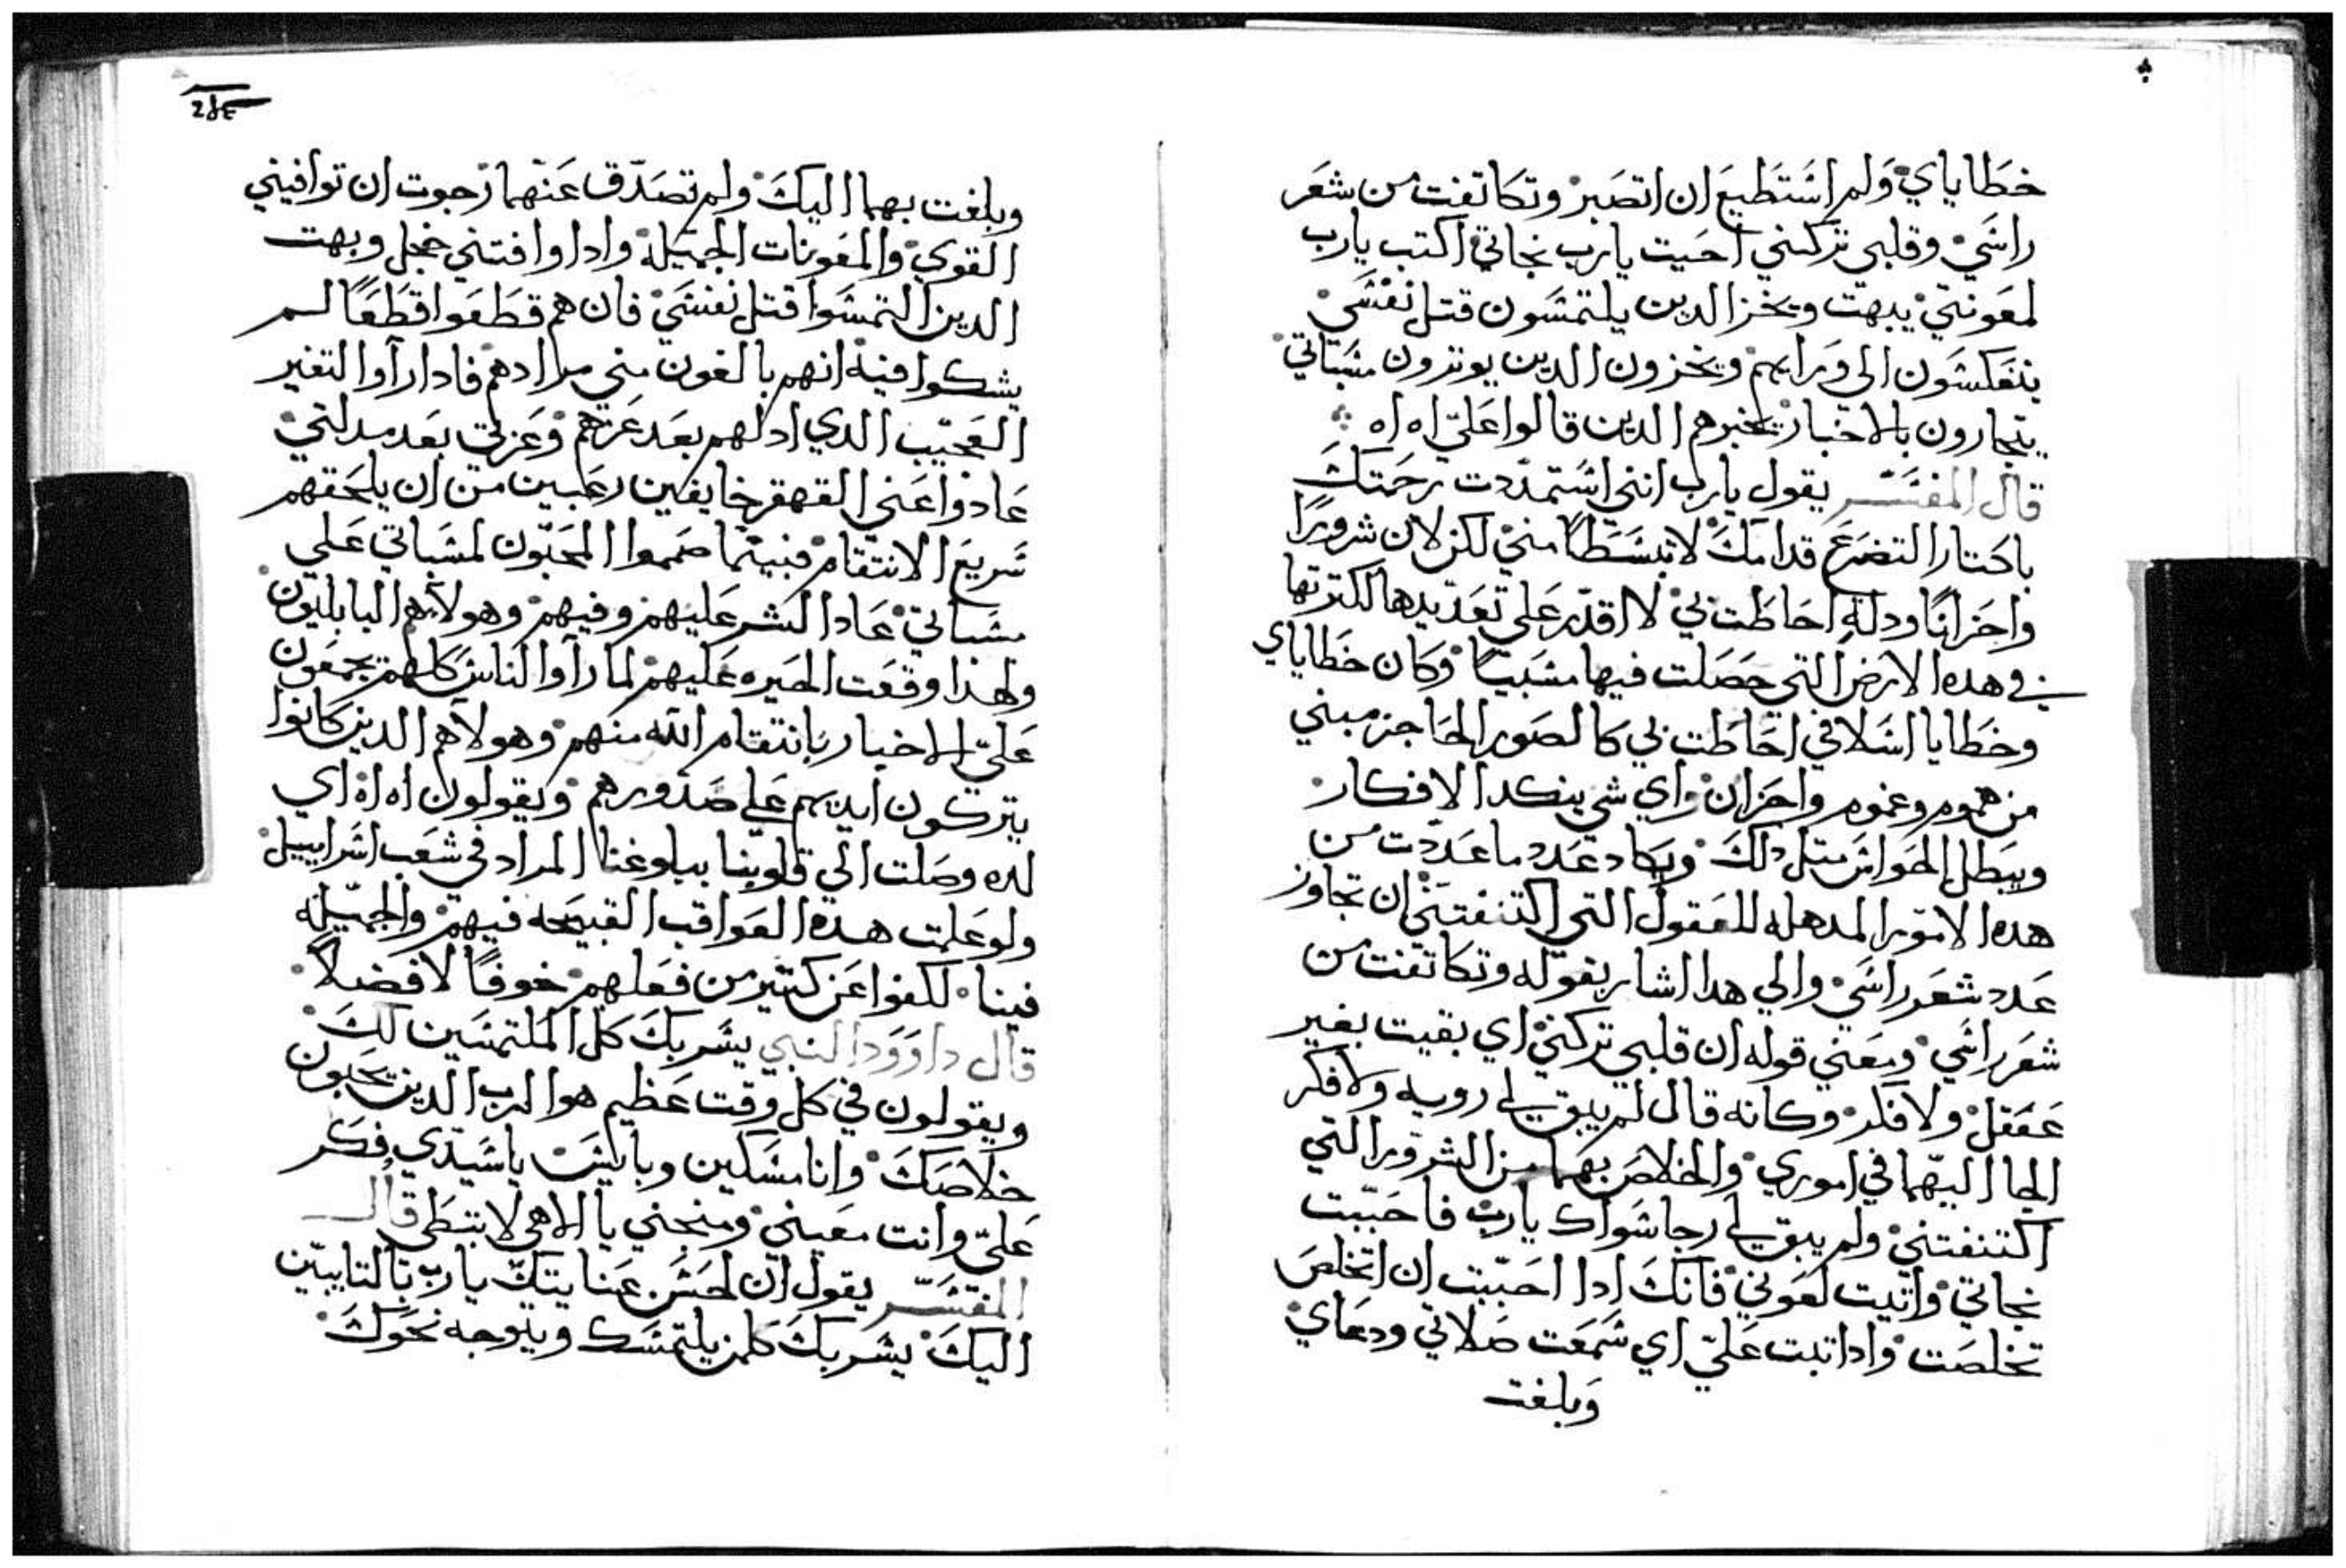 خطاياي ولم استطيع ان اتصبر وتكاتفت من شعر
راسي وقلبي تركني احببت يارب نجاتي اكتب يارب
لمعونتي يبهت ويخزا الدين يلتمسون قتل نفسي
يتعكسون الي ورايهم ويخزون الدين يوترون مسباتي
يتجارون بالاخبار يخبرهم الدين قالوا علي اه اه
قال المفسر يقول يارب انني استمديت رحمتك
باكتار التضرع قدامك لا تبسطا مني لكن لان شرورا
واحزانا ودلة احاطت بي لا اقدر علي تعديدها لكترتها
في هده الارض التي حصلت فيها مسبيا وكان خطاياي
وخطايا اسلافي احاطت بي كالصور الحاجز مبني
من هموم وغموم واحزان واي شي ينكد الافكار
ويبطل الحواس متل دلك ويكاد عدد ما عددت من
هده الامور المدهله للعقول التي اكتنفتني ان تجاوز
عدد شعر راسي والي هدا اشار بقوله وتكاتفت من
شعر راسي ومعني قوله ان قلبي تركني اي بقيت بغير
عقل ولا فكر وكانه قال لم يبق لي رويه ولا فكر
الجا اليهما في اموري والخلاص بهما من الشرور التي
اكتنفتني ولم يبق لي رجا سواك يارب فاحببت
نجاتي واتيت لعوني فانك ادا احببت ان اتخلص
تخلصت وادا تبت علي اي سمعت صلاتي ودعاي
وبلغت
٢٤٤
وبلغت بهما اليك ولم تصدق عنهما رجوت ان توافيني
القوي والمعونات الجميله وادا وافتني خجل وبهت
الدين التمسوا قتل نفسي فان هم قطعوا قطعا لم
يشكوا فيه انهم بالغون مني مرادهم فادا راوا التغير
العجيب الدي ادلهم بعد عزهم وعزني بعد مدلتي
عادوا عني القهقر خايفين رعبين من ان يلحقهم
سريع الانتقام فبينما صمموا المحبون لمسباتي علي
مسباتي عاد الشر عليهم وفيهم وهولاهم البابليون
ولهذا وقعت الحيره عليهم لما راوا الناس كلهم يجمعون
علي الاخبار بانتقام الله منهم وهولاهم الدين كانوا
يتركون ايديهم علي صدورهم ويقولون اه اه اي
لده وصلت الي قلوبنا ببلوغنا المراد في شعب اسراييل
ولو علمت هده العواقب القبيحه فيهم والجميله
فينا لكفوا عن كتير من فعلهم خوفا لا فضلا
قال داوود النبي يسر بك كل الملتمسين لك
ويقولون في كل وقت عظيم هو الرب الدين يحبون
خلاصك وانا مسكين وبايس ياسيدي فكر
علي وانت معيني ومنجني يا الاهي لا تبطي قال
المفسر يقول ان لحسن عنايتك يارب بالتايبين
اليك يسر بك كلمن يلتمسك ويتوجه نحوك